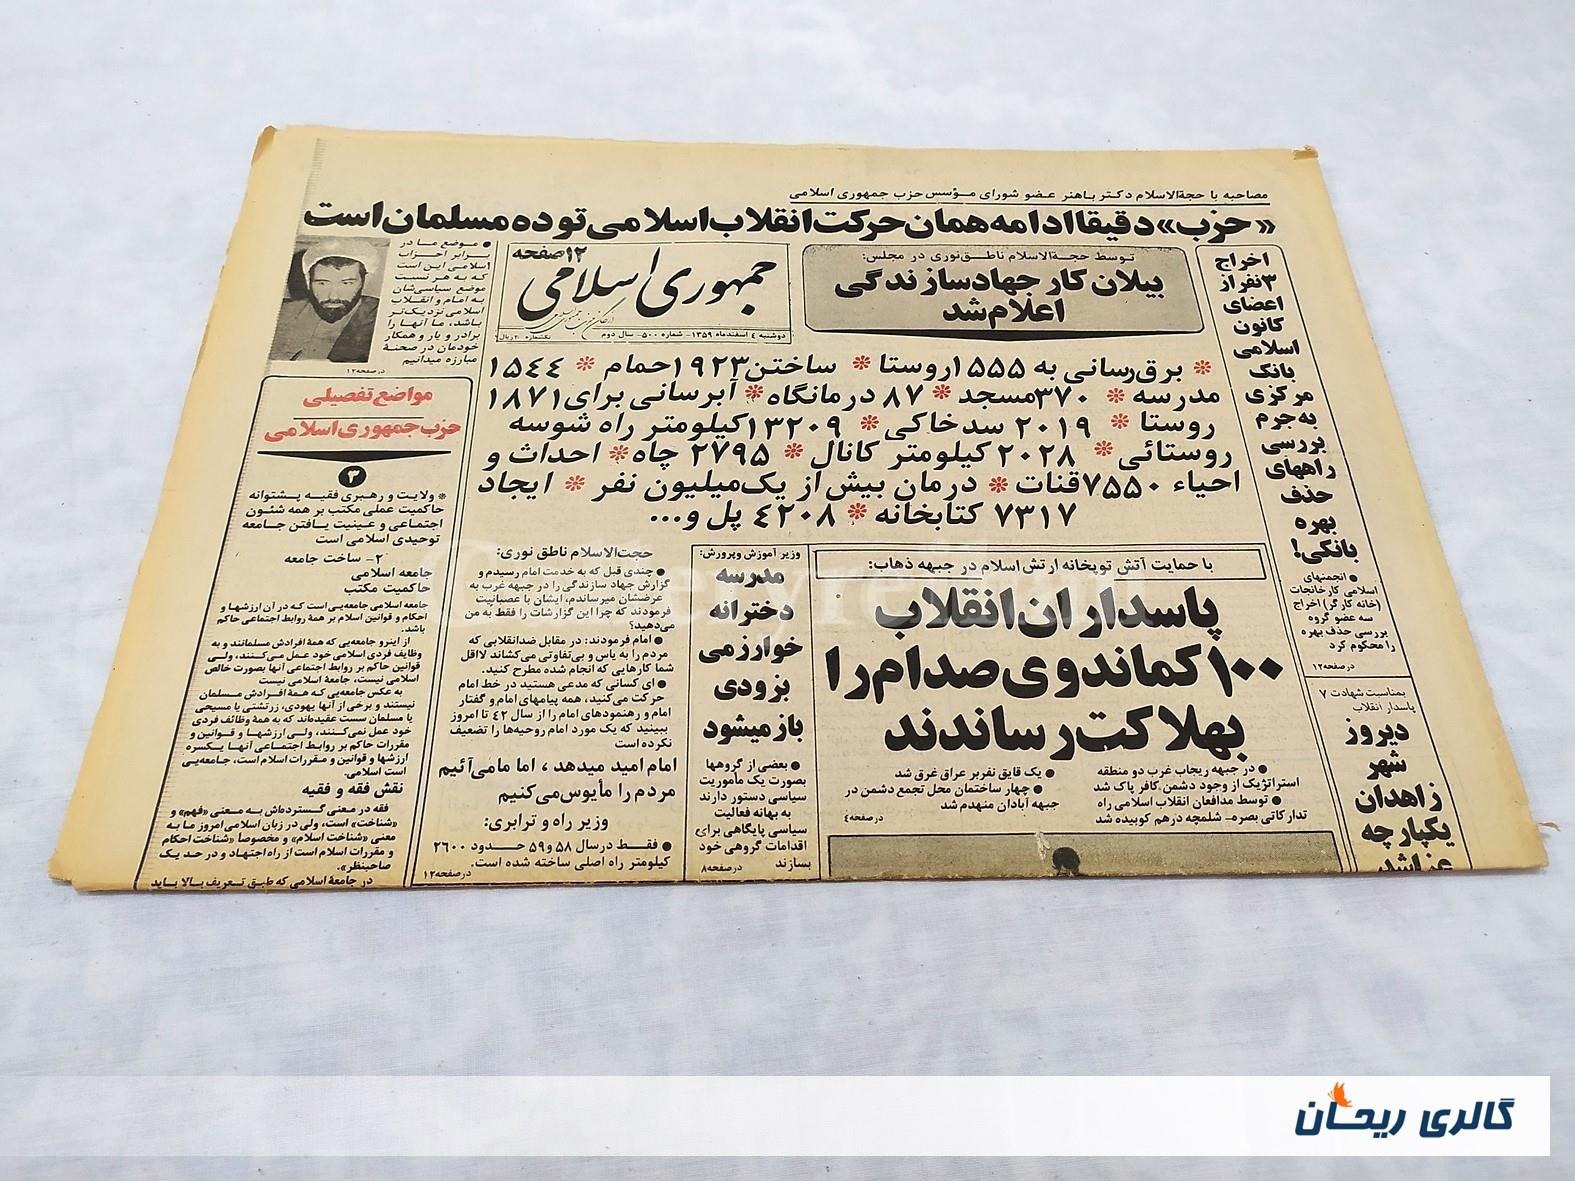 مصاحبه با حجةالاسلام دکتر باهنر عضو شورای مؤسس حزب جمهوری اسلامی
«حزب» دقیقا ادامه همان حرکت انقلاب اسلامی توده مسلمان است
اخراج
۳ نفر از
اعضای
کانون
اسلامی
بانک
مرکزی
به جرم
بررسی
راههای
حذف
بهره
بانکی!
● انجمنهای
اسلامی کارخانجات
(خانه کارگر) اخراج
سه عضو گروه
بررسی حذف بهره
را محکوم کرد
درصفحه ۱۲
بمناسبت شهادت ۷
پاسدار انقلاب
دیروز
شهر
زاهدان
یکپارچه
توسط حجةالاسلام ناطق نوری در مجلس:
بیلان کار جهاد سازندگی
اعلام شد
۱۲ صفحه
جمهوری اسلامی
دوشنبه ٤ اسفندماه ۱۳۵۹ – شماره ۵۰۰ – سال دوم
● موضع ما در
برابر احزاب
اسلامی این است
که به هر نسبت
موضع سیاسی‌شان
به امام و انقلاب
اسلامی نزدیک‌تر
باشد، ما آنها را
برادر و یار و همکار
خودمان در صحنهٔ
مبارزه میدانیم
درصفحه ۱۲
* برق رسانی به ۱۵۵۵ روستا * ساختن ۱۹۲۳ حمام * ۱۵٤٤
مدرسه * ۳۷۰ مسجد * ۸۷ درمانگاه * آبرسانی برای ۱۸۷۱
روستا * ۲۰۱۹ سد خاکی * ۱۳۲۰۹ کیلومتر راه شوسه
روستائی * ۲۰۲۸ کیلومتر کانال * ۲۷۹۵ چاه * احداث و
احیاء ۷۵۵۰ قنات * درمان بیش از یک میلیون نفر * ایجاد
۷۳۱۷ کتابخانه * ٤۲۰۸ پل و...
با حمایت آتش توپخانه ارتش اسلام در جبهه ذهاب:
پاسداران انقلاب
۱۰۰ کماندوی صدام را
بهلاکت رساندند
● در جبهه ریجاب غرب دو منطقه
استراتژیک از وجود دشمن کافر پاک شد
● توسط مدافعان انقلاب اسلامی راه
تدارکاتی بصره – شلمچه درهم کوبیده شد
● یک قایق نفربر عراق غرق شد
● چهار ساختمان محل تجمع دشمن در
جبهه آبادان منهدم شد
درصفحه ٤
وزیر آموزش و پرورش:
مدرسه
دخترانه
خوارزمی
بزودی
باز میشود
● بعضی از گروهها
بصورت یک مأموریت
سیاسی دستور دارند
به بهانه فعالیت
سیاسی پایگاهی برای
اقدامات گروهی خود
بسازند
درصفحه ۸
حجت‌الاسلام ناطق نوری:
● چندی قبل که به خدمت امام رسیدم و
گزارش جهاد سازندگی را در جبهه غرب به
عرضشان میرساندم، ایشان با عصبانیت
فرمودند که چرا این گزارشات را فقط به من
می‌دهید؟
● امام فرمودند: در مقابل ضدانقلابی که
مردم را به یاس و بی‌تفاوتی می‌کشاند لااقل
شما کارهایی که انجام شده مطرح کنید.
● ای کسانی که مدعی هستید در خط امام
حرکت می‌کنید، همه پیامهای امام و گفتار
امام و رهنمودهای امام را از سال ٤۲ تا امروز
ببینید که یک مورد امام روحیه‌ها را تضعیف
نکرده است
امام امید میدهد ، اما مامی‌آئیم
مردم را مأیوس می‌کنیم
وزیر راه و ترابری:
● فقط در سال ۵۸ و ۵۹ حدود ۲٦۰۰
کیلومتر راه اصلی ساخته شده است.
درصفحه ۱۲
مواضع تفصیلی
حزب جمهوری اسلامی
۳
* ولایت و رهبری فقیه پشتوانه
حاکمیت عملی مکتب بر همه شئون
اجتماعی و عینیت یافتن جامعه
توحیدی اسلامی است
۲– ساخت جامعه
جامعه اسلامی
حاکمیت مکتب
جامعه اسلامی جامعه‌یی است که در آن ارزشها و
احکام و قوانین اسلام بر همهٔ روابط اجتماعی حاکم
باشد.
از اینرو جامعه‌یی که همهٔ افرادش مسلمانند و به
وظایف فردی اسلامی خود عمل می‌کنند، ولی
قوانین حاکم بر روابط اجتماعی آنها بصورت خالص
اسلامی نیست، جامعهٔ اسلامی نیست
به عکس جامعه‌یی که همهٔ افرادش مسلمان
نیستند و برخی از آنها یهودی، زرتشتی یا مسیحی
یا مسلمان سست عقیده‌اند که به همهٔ وظائف فردی
خود عمل نمی‌کنند، ولی ارزشها و قوانین و
مقررات حاکم بر روابط اجتماعی آنها یکسره
ارزشها و قوانین و مقررات اسلام است، جامعه‌یی
است اسلامی.
نقش فقه و فقیه
فقه در معنی گسترده‌اش به معنی «فهم» و
«شناخت» است، ولی در زبان اسلامی امروز ما به
معنی «شناخت اسلام» و مخصوصا «شناخت احکام
و مقررات اسلام است از راه اجتهاد و در حد یک
صاحبنظر».
در جامعهٔ اسلامی که طبق تعریف بالا باید
گالری ریحان